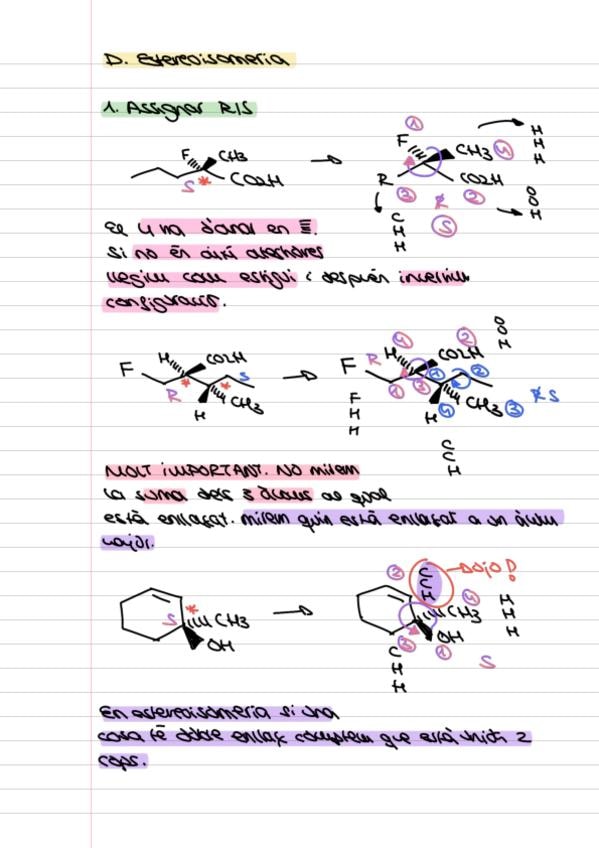 D. Estereoisomeria
1. Assignar R/S
F CH3
S * CO2H
1
F CH3 4
R CO2H
3 R 2
S
H
H
H
O
O
H
C
H
H
El 4 ha d'anar en
Si no és així aleshores
llegim com estigui i després invertim
configuració.
F H CO2H
R * * S
H CH3
F R H 4 CO2H 2
1 3 1 2
H 4 CH3 3
R S
F
H
H
O
O
H
C
C
H
MOLT IMPORTANT. NO mirem
la suma dels 3 àtoms al qual
està enllaçat. mirem quin està enllaçat a un àtom
major.
S * CH3
OH
2 C
C
H
DOJO!
4
CH3
OH
3 1
S
H
H
H
C
H
H
En estereoisomeria si una
cosa té doble enllaç comptem que està unida 2
cops.